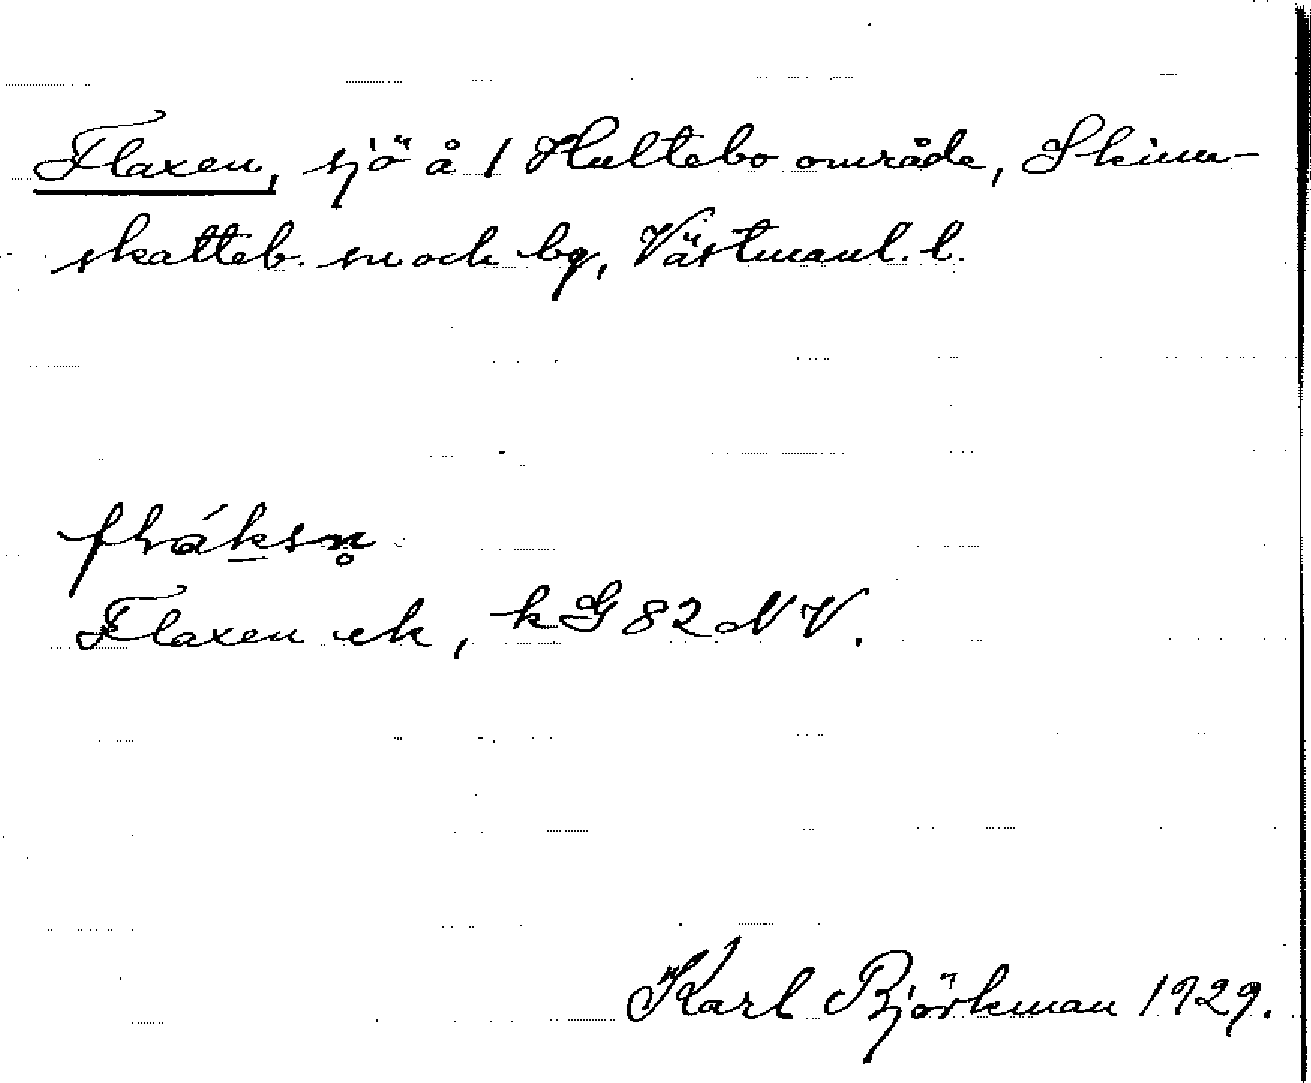 Flaxen, sjö å 1 Hultebo område, Skinn-
skatteb. sn och bg, Västmanl. l.
flák̲sn̥
Flaxen ek, kG 82 NV.
Karl Björkman 1929.